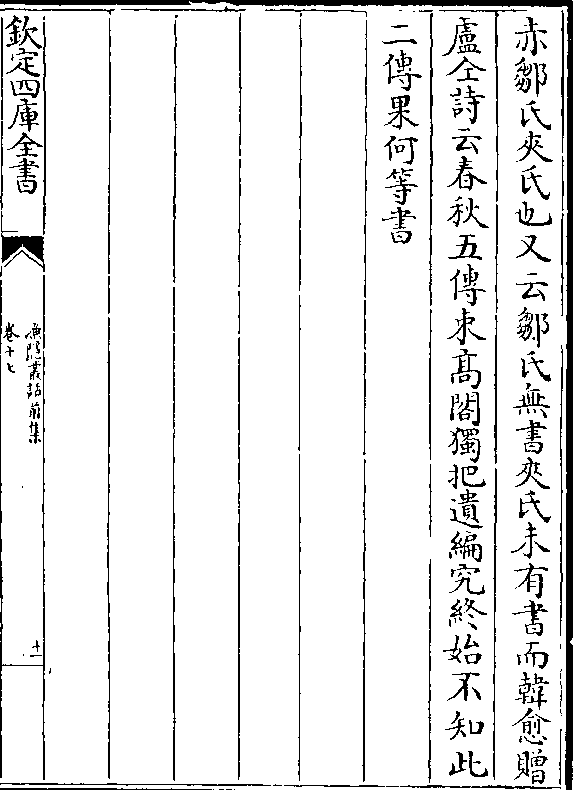 赤鄒氏夾氏也又云鄒氏無書夾氏未有書而韓愈贈
盧仝詩云春秋五傳束髙閣獨把遺編究終始不知此
二傳果何等書
欽定四庫全書
漁隱叢話前集
卷十七
十一